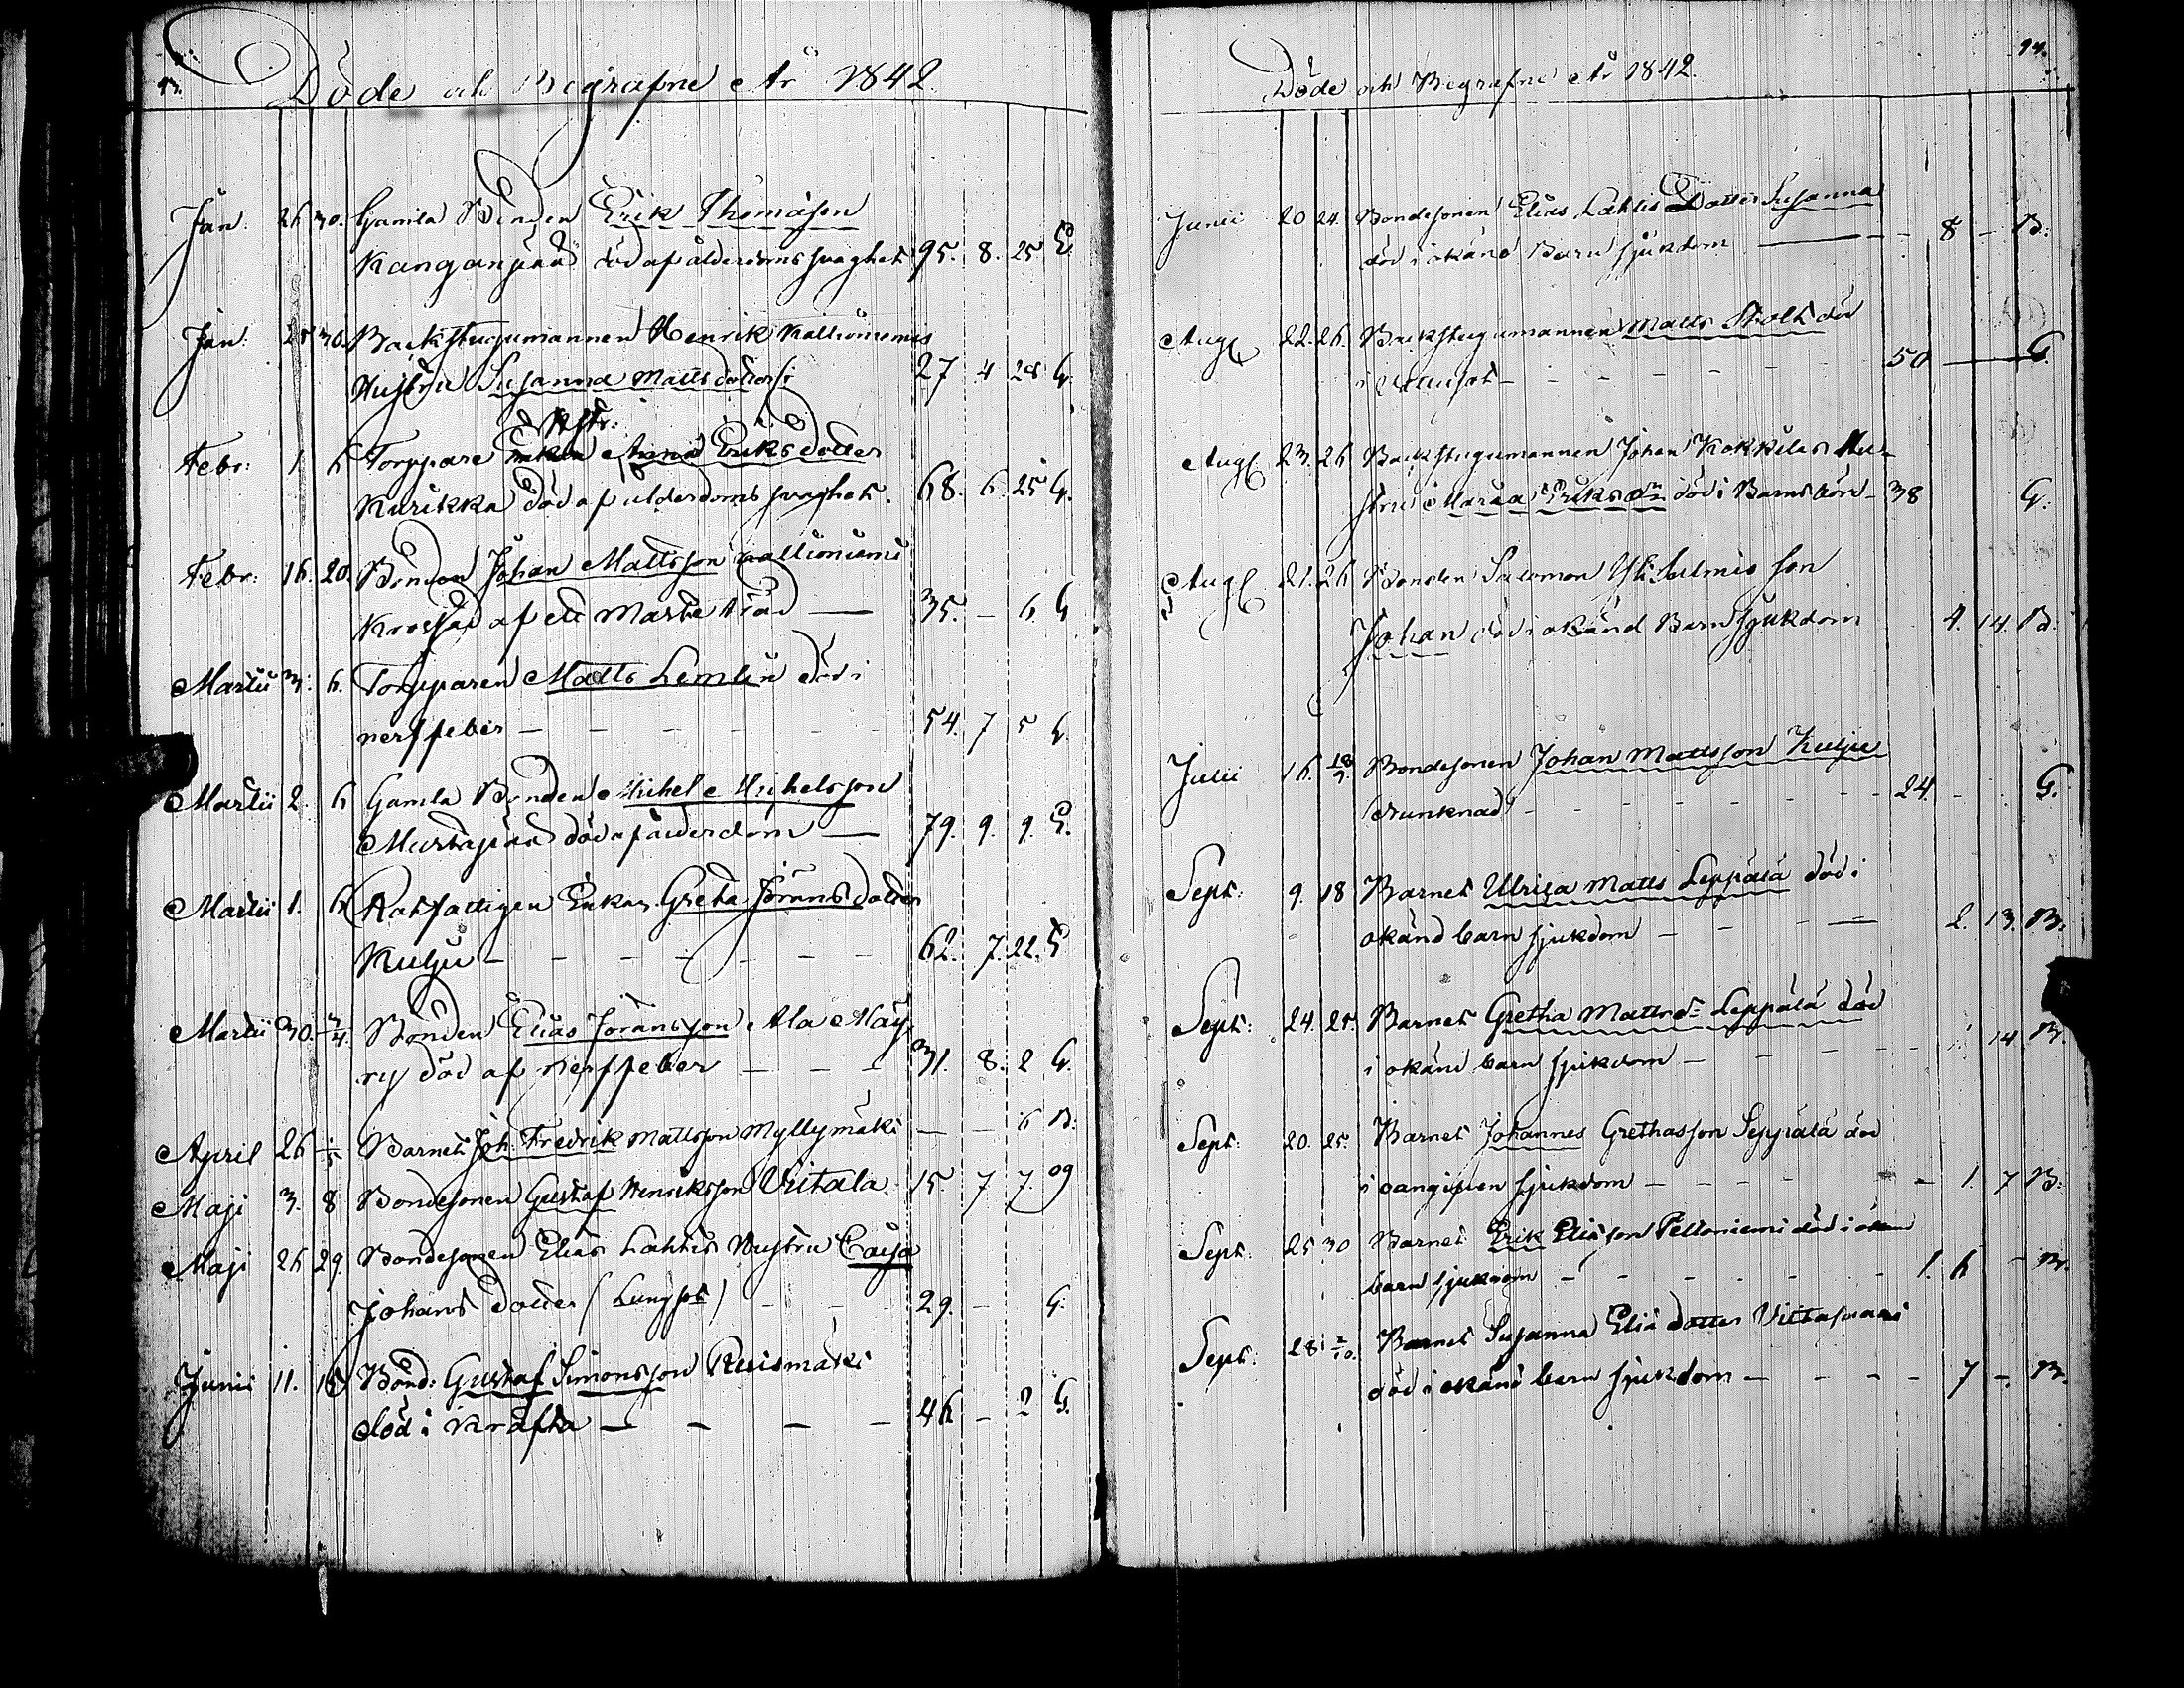 93.
Döde och Begrafne År 1842.
Jan: 26 30. Gamla Bonden Erik Thomasson
Kanganpää död af ålderdoms svaghet 95. 8. 25 E
Jan: 25 30. Backstugumannen Henrik Kallioniemis
Hustru Susanna Mattsdotter 27 4 28 G.
Hstr:
Febr: 1 6 Torppare Enkan Anna Eriksdotter
Kurikka död af ålderdoms svaghet. 68. 6 25 G.
Febr: 16. 20. Bonden Johan Mattsson Kallioniemi
Krossad af ett Marke träd — 35. – 6 G
Martii 3. 6. Torpparen Matts Lemlin död i
nerffeber – – – – – – 54. 7 5 G.
Martii 2. 6 Gamla Bonden Michel Michelsson
Mustapää död af ålderdom — 79. 9. 9. E.
Martii 1. 6 Ratfattigen Enkan Greta Göransdotter
Kulju – – – – – – – 62. 7. 22. E
Martii 30. 3/4. Bonden Elias Jöransson Ala Nay
ry död af nerffeber – – – 31. 8. 2 G.
April 26 1/5 Barnet Joh. Fredrik Mattsson Myllymäki — — 6 B.
Maji 3. 8 Bondesonen Gustaf Henriksson Viitala 15. 7 7. og
Maji 26 29. Bondesonen Elias Lahtis Hustru Caisa
Johans dotter (Lungsot) – – – 29. – G.
Junii 11. 15 Bond: Gustaf Simonsson Ruismäki
död i Kräfta – – – – 46 – 2 G.
94.
Döde och Begrafne År 1842.
Junii 20 24. Bondesonen Elias Lahtis Dotter Susanna
död i okänd Barn sjukdom — – 8 – B.
Aug 22. 26. Backstugumannen Matts Stolt död
i – – – – – – 50 — G.
Aug 23. 26 Backstugumannen Johan Kokkilas Hu-
stru Maria Eriks dr död i Barnsbörd – 38 G.
Aug 21. 26 Bonden Salomon Yli Salmis son
Johan död i okänd Barn sjukdom 4. 14. B.
Julii 16. 18/9. Bondesonen Johan Mattsson Kulju
(drunknad) – – – – – – 24. – G.
Sept: 9. 18 Barnet Ulrica Matts Leppälä död i
okänd barn sjukdom – – – – 2. 13. B.
Sept: 24. 25. Barnet Gretha Matts dr Leppälä död
i okänd barn sjukdom – – – – – 14 B.
Sept: 20. 25. Barnet Johannes Grethasson Seppälä död
i oangifven sjukdom – – – – – 1. 7 B.
Sept: 25 30 Barnet Erik Eliæson Peltoniemi död i okän
barn sjukdom – – – – – – 1. 6 – B.
Sept: 28 2/10. Barnet Susanna Eliæ dotter Viitasaari
död i okänd barn sjukdom – – – – 7 – B.